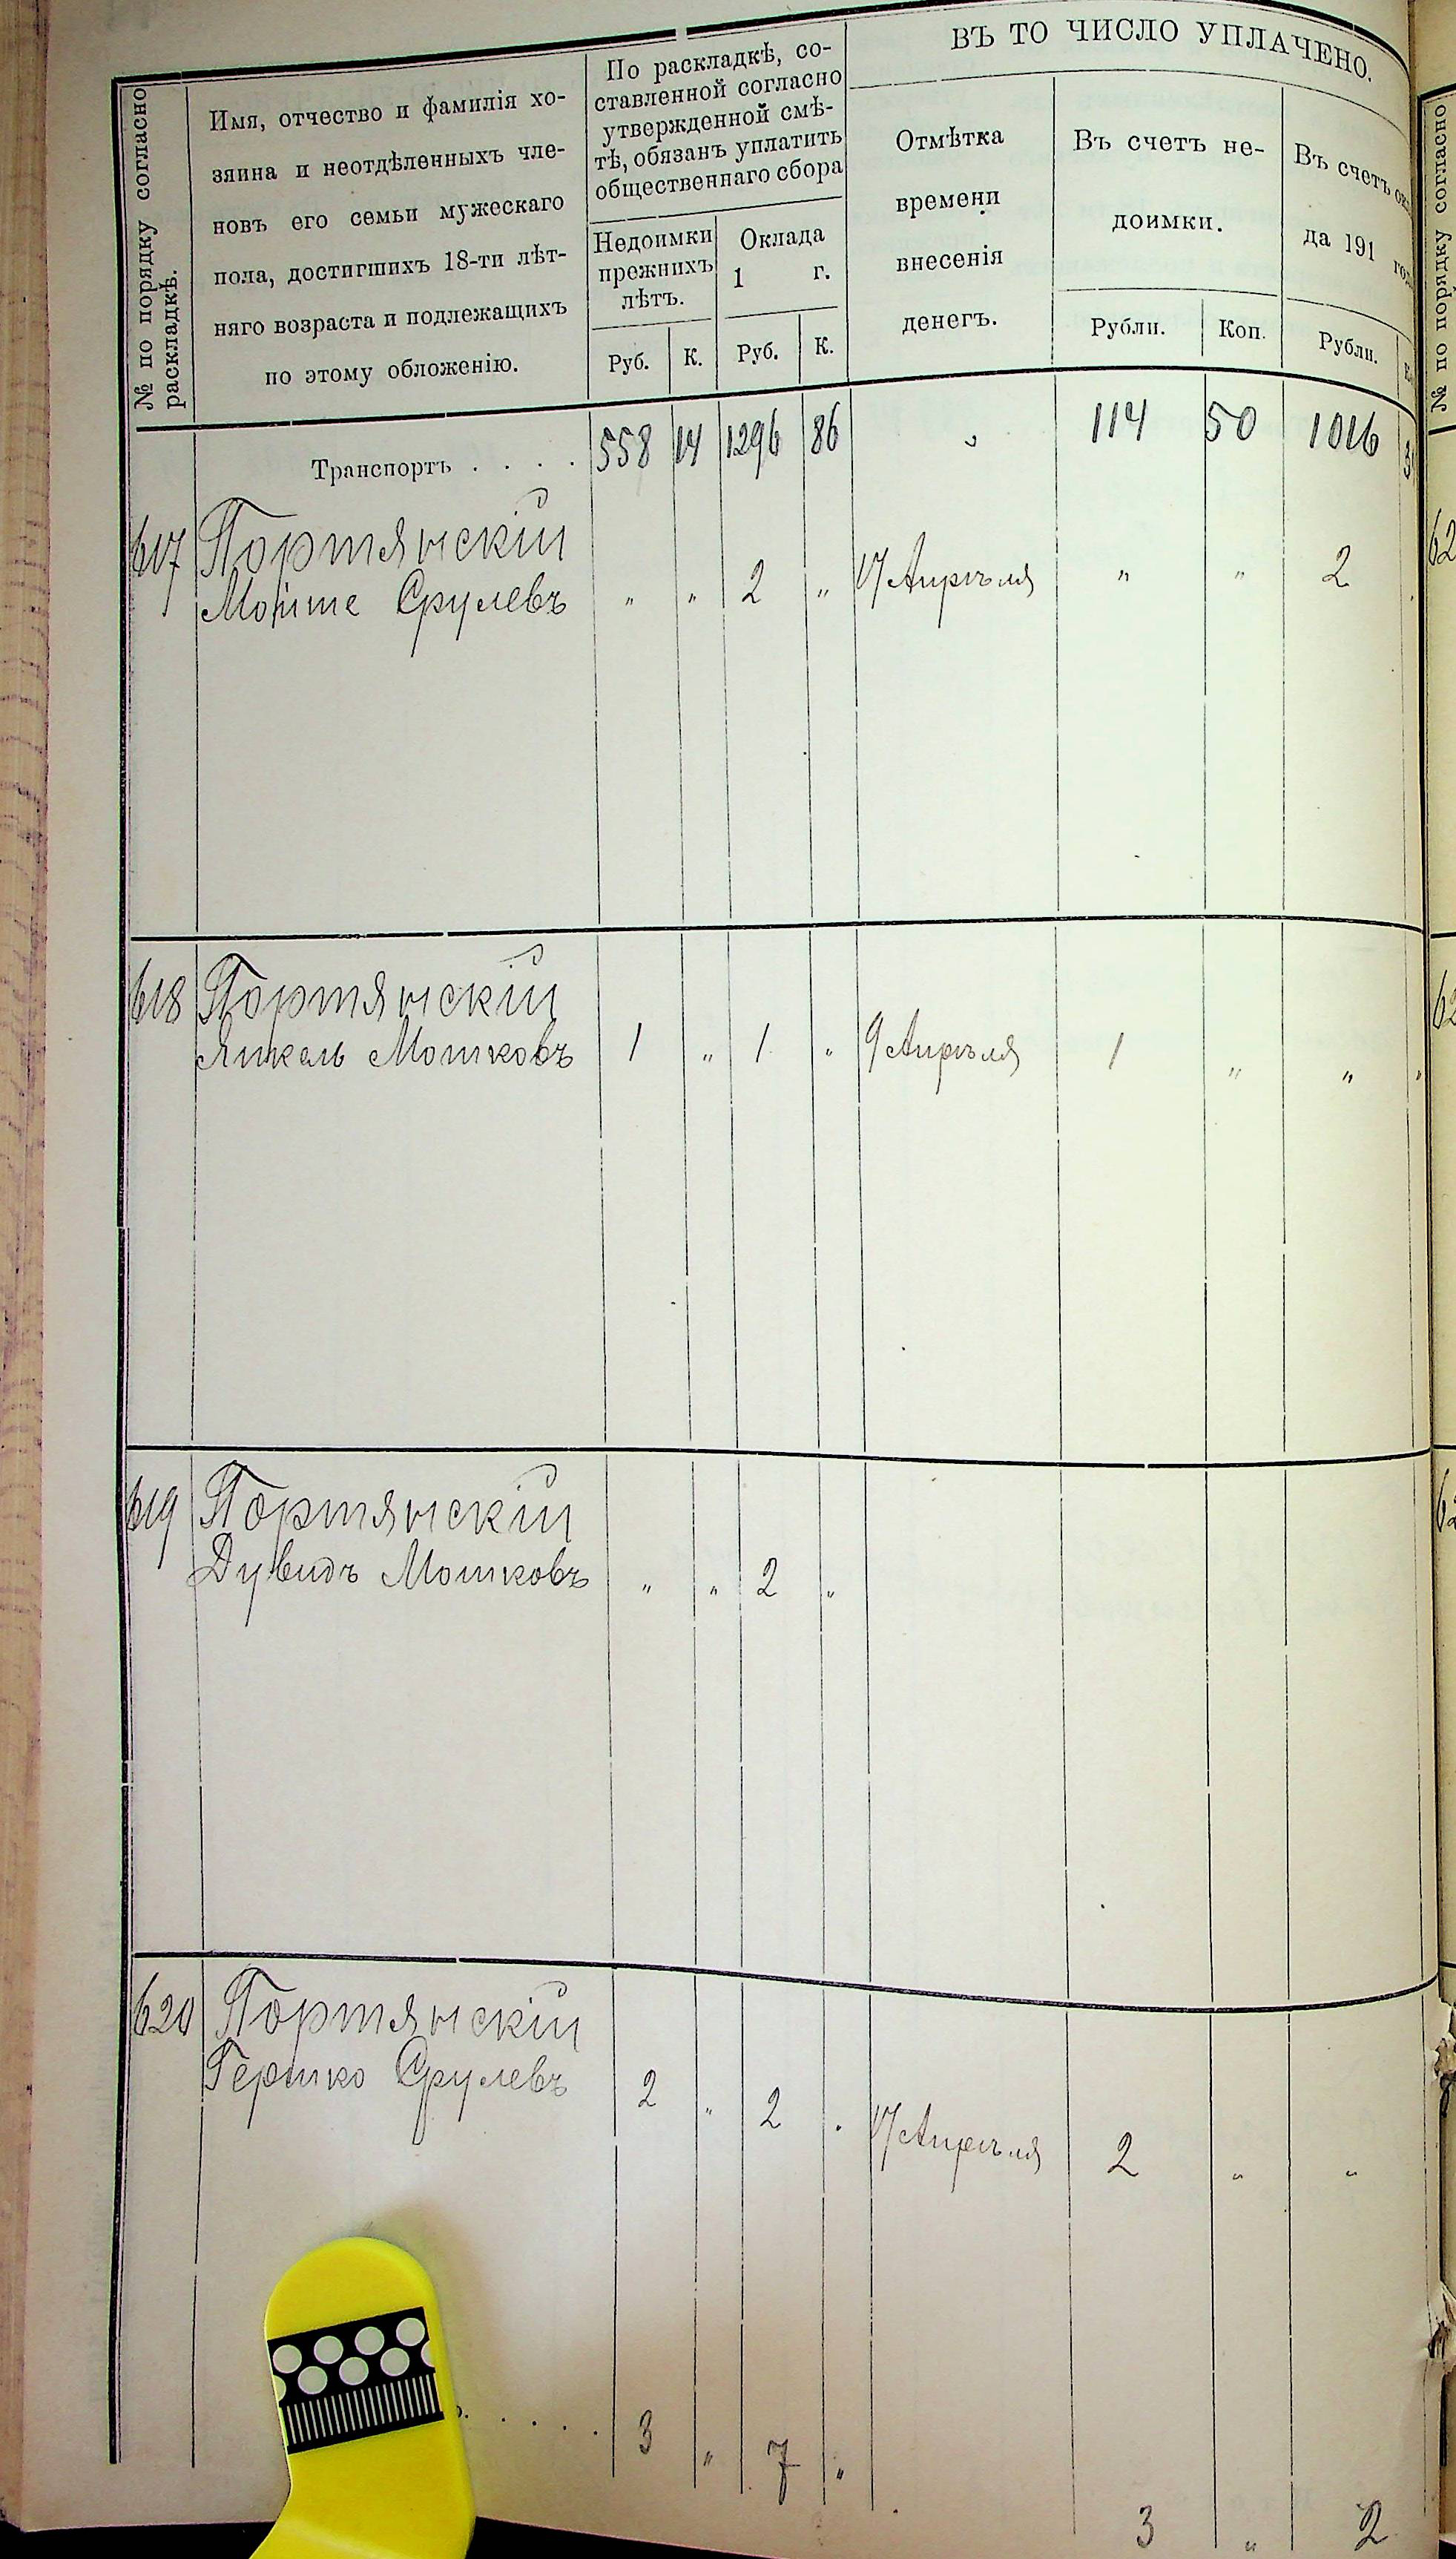 № по порядку согласно
раскладкѣ.
Имя, отчество и фамилія хо-
зяина и неотдѣленныхъ чле-
новъ его семьи мужескаго
пола, достигшихъ 18-ти лѣт-
няго возраста и подлежащихъ
по этому обложенію.
По раскладкѣ, со-
ставленной согласно
утвержденной смѣ-
тѣ, обязанъ уплатить
общественнаго сбора
Недоимки
прежнихъ
лѣтъ.
Руб. К.
Оклада
1 г.
Руб. К.
ВЪ ТО ЧИСЛО УПЛАЧЕНО.
Отмѣтка
времени
внесенія
денегъ.
Въ счетъ не-
доимки.
Рубли. Коп.
Въ счетъ
да 191
Рубли.
Транспортъ . . . . 558 14 1296 86 " 114 50 1016
617 Портянскій
Мойше Срулевъ " " 2 " 17 Апрѣля " " 2
618 Портянскій
Янкель Мошковъ 1 " 1 " 9 Апрѣля 1 " "
619 Портянскій
Дувидъ Мошковъ " " 2 "
620 Портянскій
Гершко Срулевъ 2 " 2 " 17 Апрѣля 2 " "
3 " 7 " 3 " 2
№ по порядку согласно